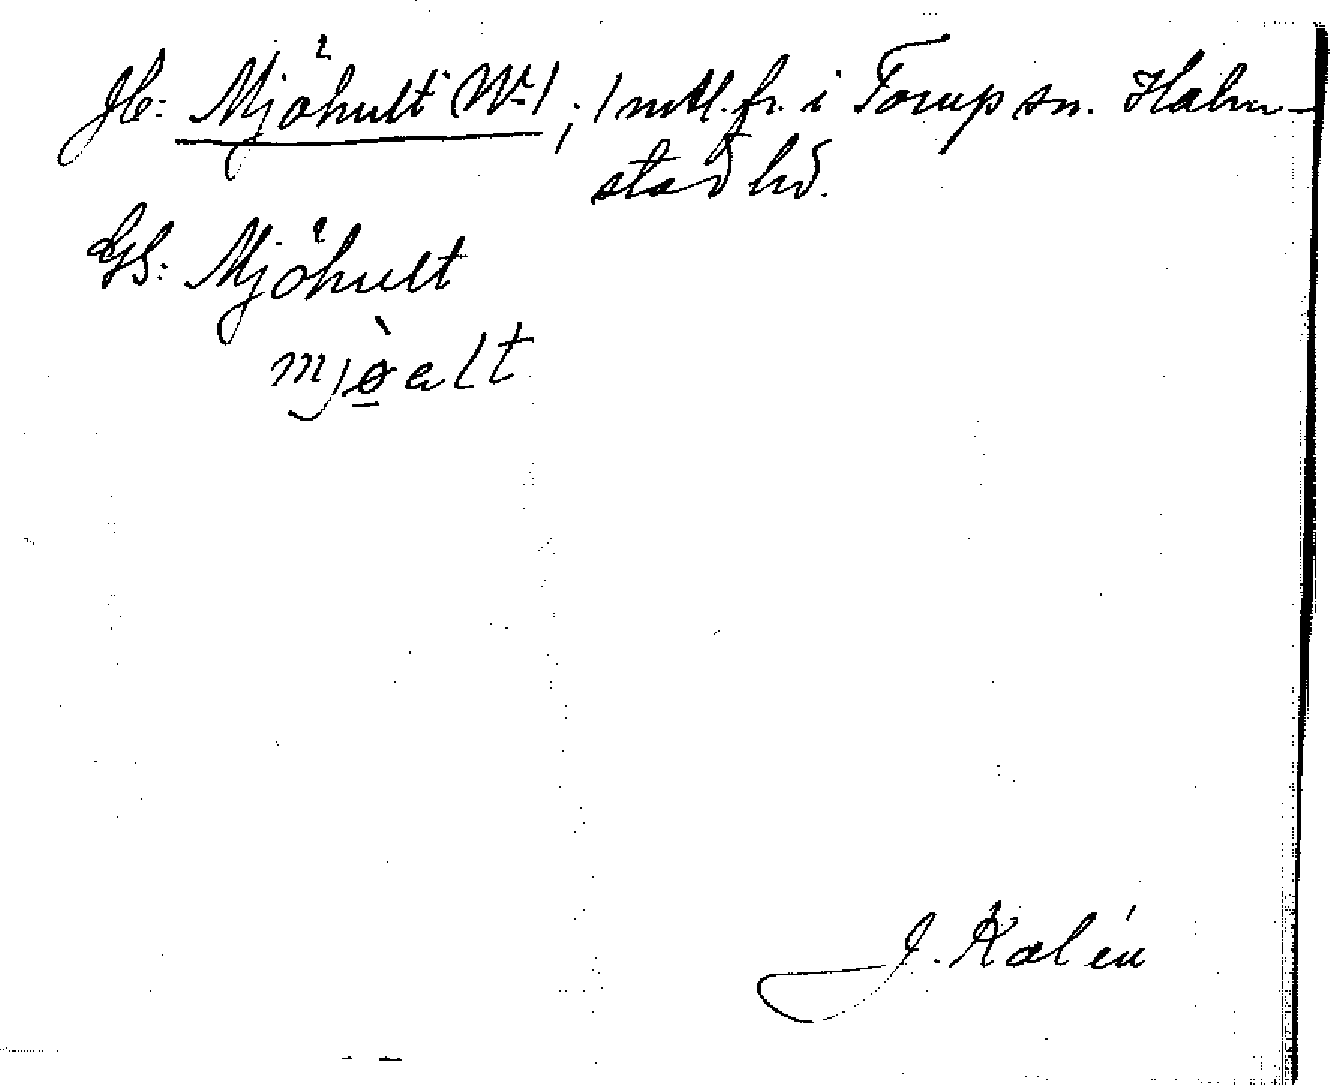 Jb: Mjöhult Nr 1; 1 mtl. fr. i Torup sn. Halm-
stad hd.
Gs: Mjöhult
mjøalt
J. Kalén